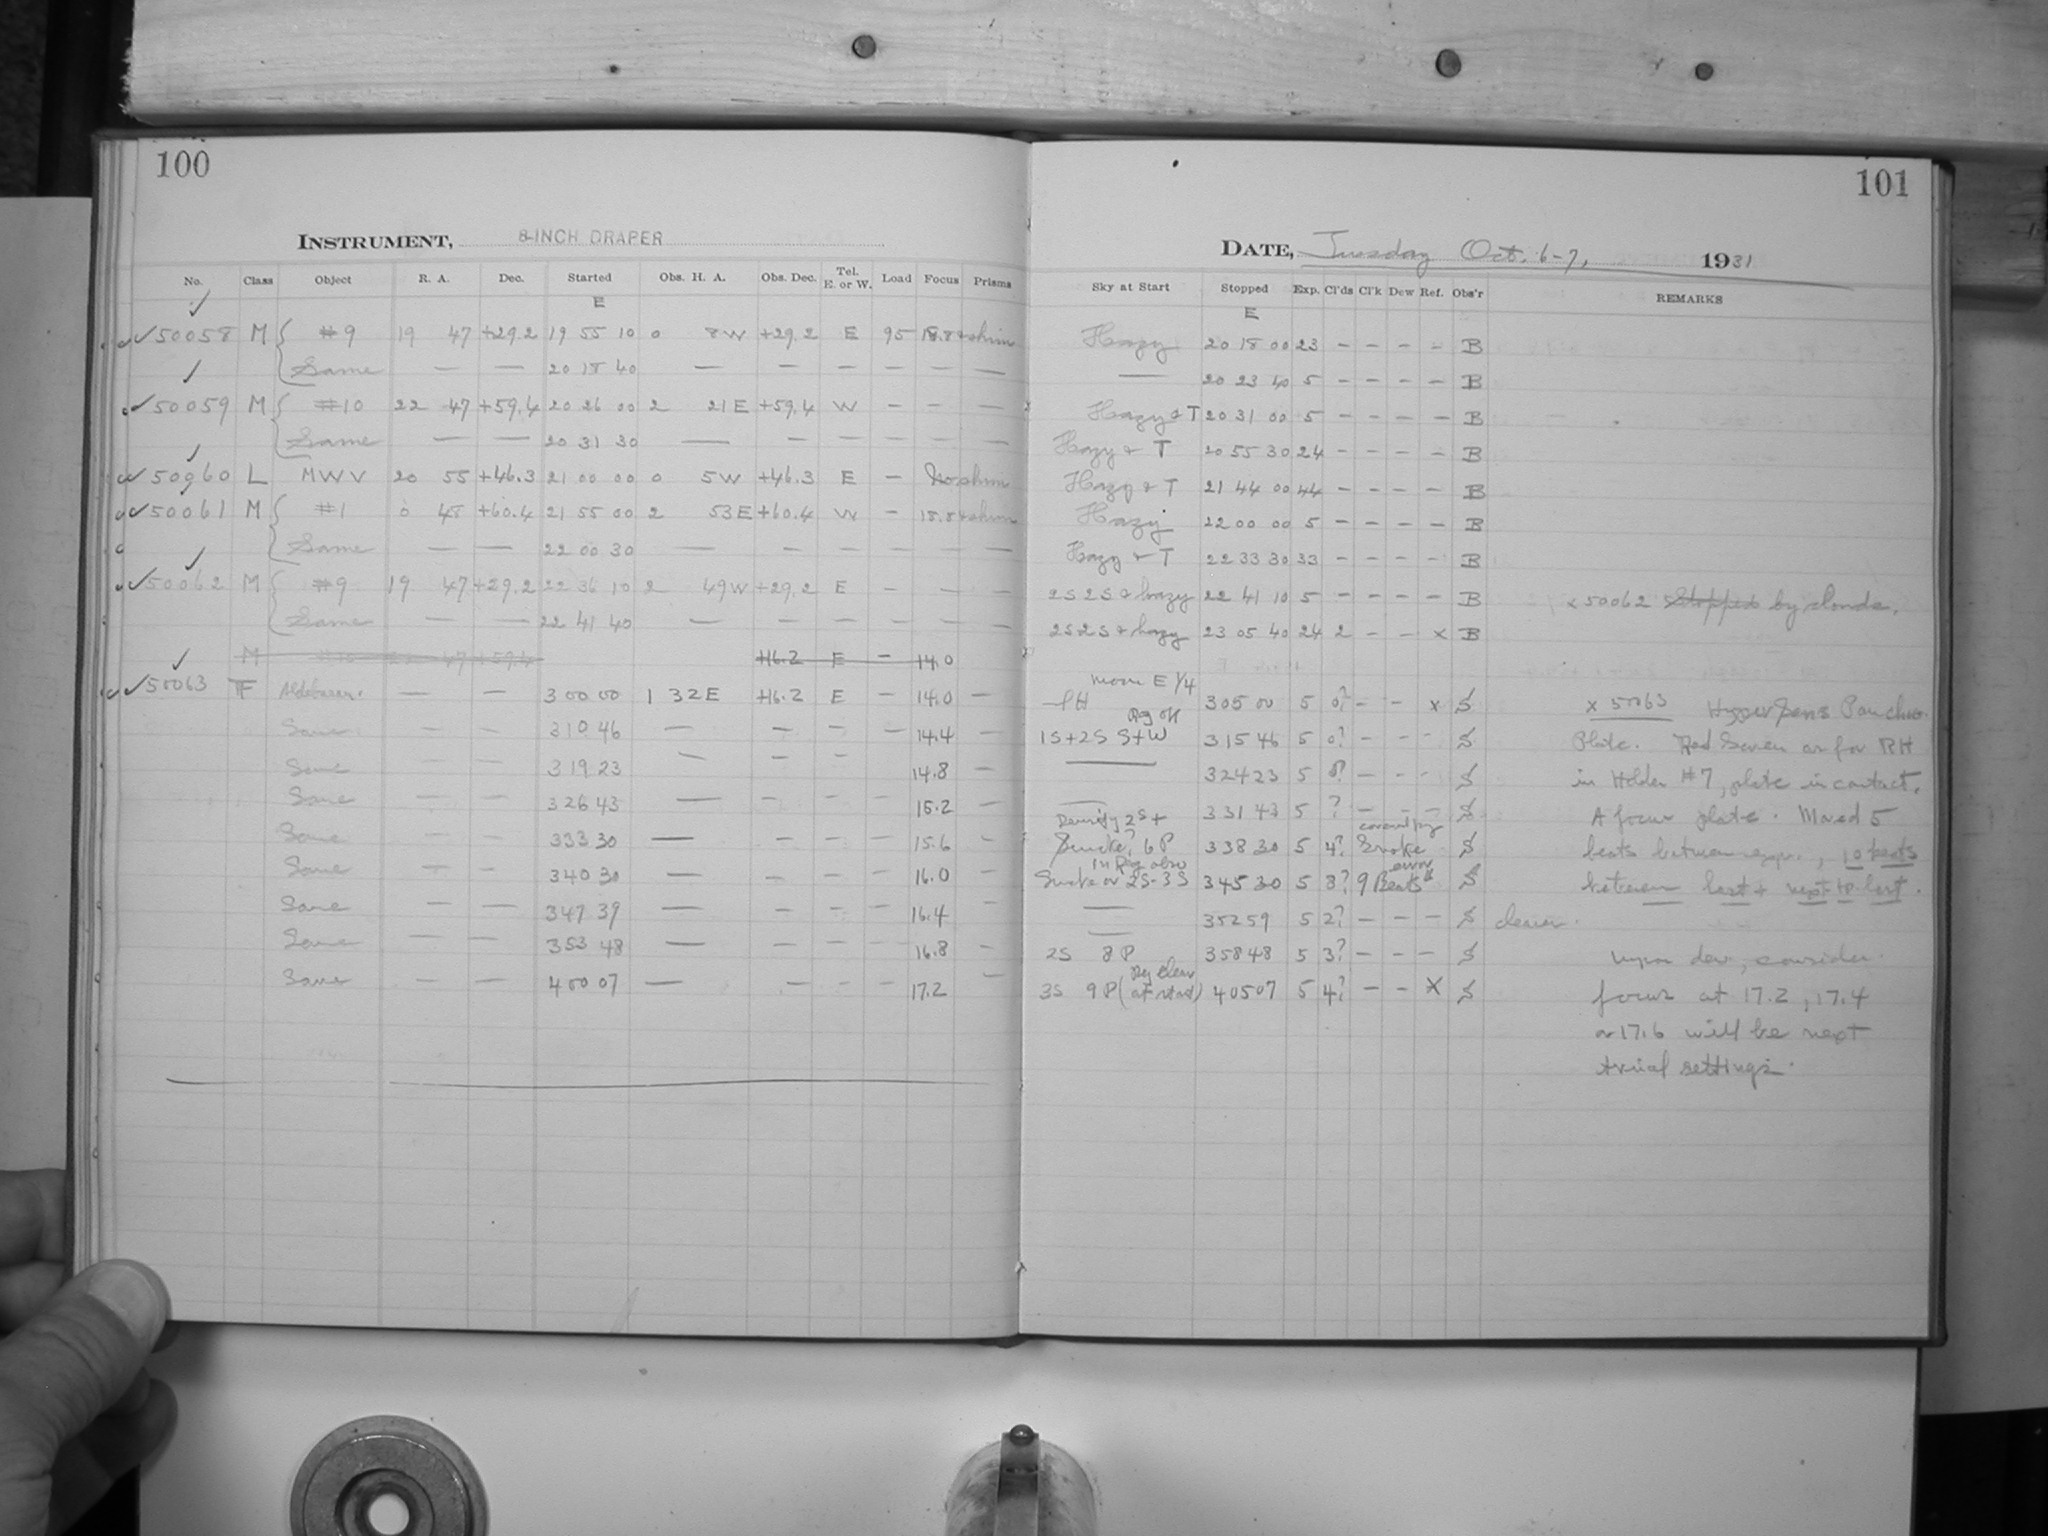 100
INSTRUMENT, 8-INCH DRAPER
No. Class Object R. A. Dec. Started Obs. H. A. Obs. Dec. Tel. E. or W. Load Focus Prisms
E
50058 M #9 19 47 +29.2 19 55 10 0 8W +29.2 E 95 18.8+shim
Same — — 20 18 40 — — — — — —
50059 M #10 22 47 +59.4 20 26 00 2 21E +59.4 W — — —
Same — — 20 31 30 — — — — — —
50060 L MWV 20 55 +46.3 21 00 00 0 5W +46.3 E — No shim
50061 M #1 0 48 +60.4 21 55 00 2 53E +60.4 W — 18.8+shim
Same — — 22 00 30 — — — — — —
50062 M #9 19 47 +29.2 22 36 10 2 49W +29.2 E — — —
Same — — 22 41 40 — — — — — —
M #10 22 47 +59.4 +16.2 E — 14.0
50063 F Aldebaran. — — 3 00 00 1 32E +16.2 E — 14.0 —
Same — — 3 10 46 — — — — 14.4 —
Same — — 3 19 23 — — — — 14.8 —
Same — — 3 26 43 — — — — 15.2 —
Same — — 3 33 30 — — — — 15.6 —
Same — — 3 40 30 — — — — 16.0 —
Same — — 3 47 39 — — — — 16.4 —
Same — — 3 53 48 — — — — 16.8 —
Same — — 4 00 07 — — — — 17.2 —
101
DATE, Tuesday Oct. 6-7, 1931
Sky at Start Stopped Exp. Cl'ds Cl'k Dew Ref. Obs'r REMARKS
E
Hazy 20 18 00 23 — — — — B
— 20 23 40 5 — — — — B
Hazy & T 20 31 00 5 — — — — B
Hazy & T 20 55 30 24 — — — — B
Hazy & T 21 44 00 44 — — — — B
Hazy 22 00 00 5 — — — — B
Hazy & T 22 33 30 33 — — — — B
2S 2S & hazy 22 41 10 5 — — — — B x 50062 Stopped by clouds.
2S 2S & hazy 23 05 40 24 2 — — x B
Moon E 1/4
3 05 00 5 0? — — x S x 50063 Hypersens Panchro.
1S+2S S+W 3 15 46 5 0? — — — S Plate. Red Screen as for RH
— 3 24 23 5 0? — — — S in Holder #7, plate in contact.
— 3 31 43 5 ? — — — S A focus plate. Moved 5
Smoke, 6P 3 38 30 5 4? Smoke S beats between exps., 10 beats
Smoke or 2S-3S 3 45 30 5 8? 9 Beats error S between last & next to last.
— 3 52 59 5 2? — — — S clearer.
2S 8P 3 58 48 5 3? — — — S Upon dev, consider
3S 9P (sky clear at start) 4 05 07 5 4? — — X S focus at 17.2, 17.4
or 17.6 will be next
trial settings.